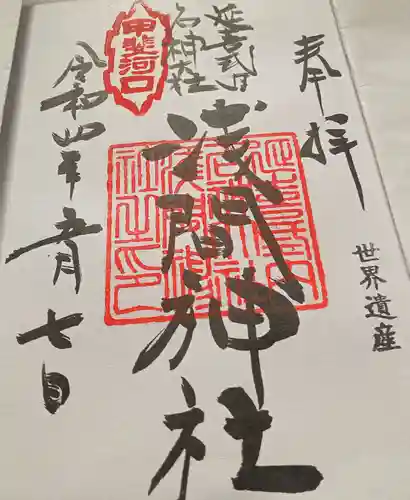 奉拝
世界遺産
延喜式内
名神大社
甲斐河口
浅間神社
令和四年五月七日